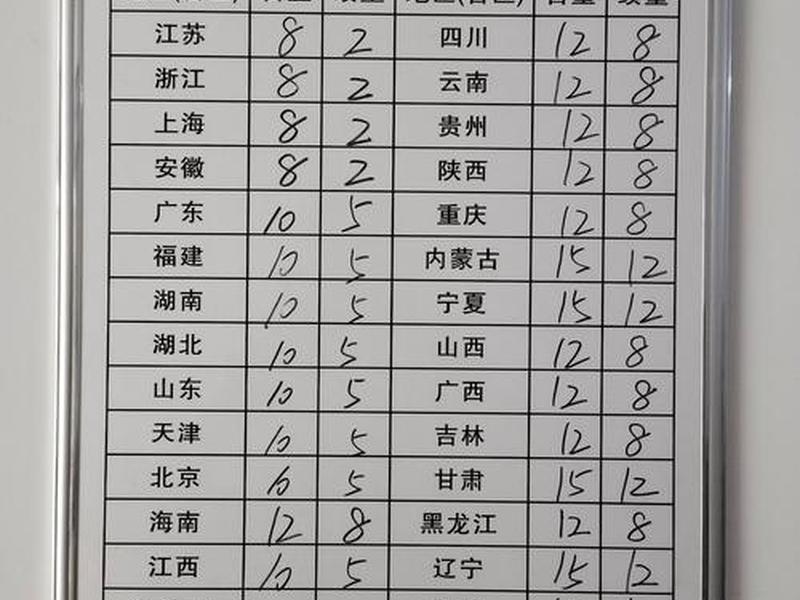 江苏 8 2 四川 12 8
浙江 8 2 云南 12 8
上海 8 2 贵州 12 8
安徽 8 2 陕西 12 8
广东 10 5 重庆 12 8
福建 10 5 内蒙古 15 12
湖南 10 5 宁夏 15 12
湖北 10 5 山西 12 8
山东 10 5 广西 12 8
天津 10 5 吉林 12 8
北京 10 5 甘肃 15 12
海南 12 8 黑龙江 12 8
江西 10 5 辽宁 15 12